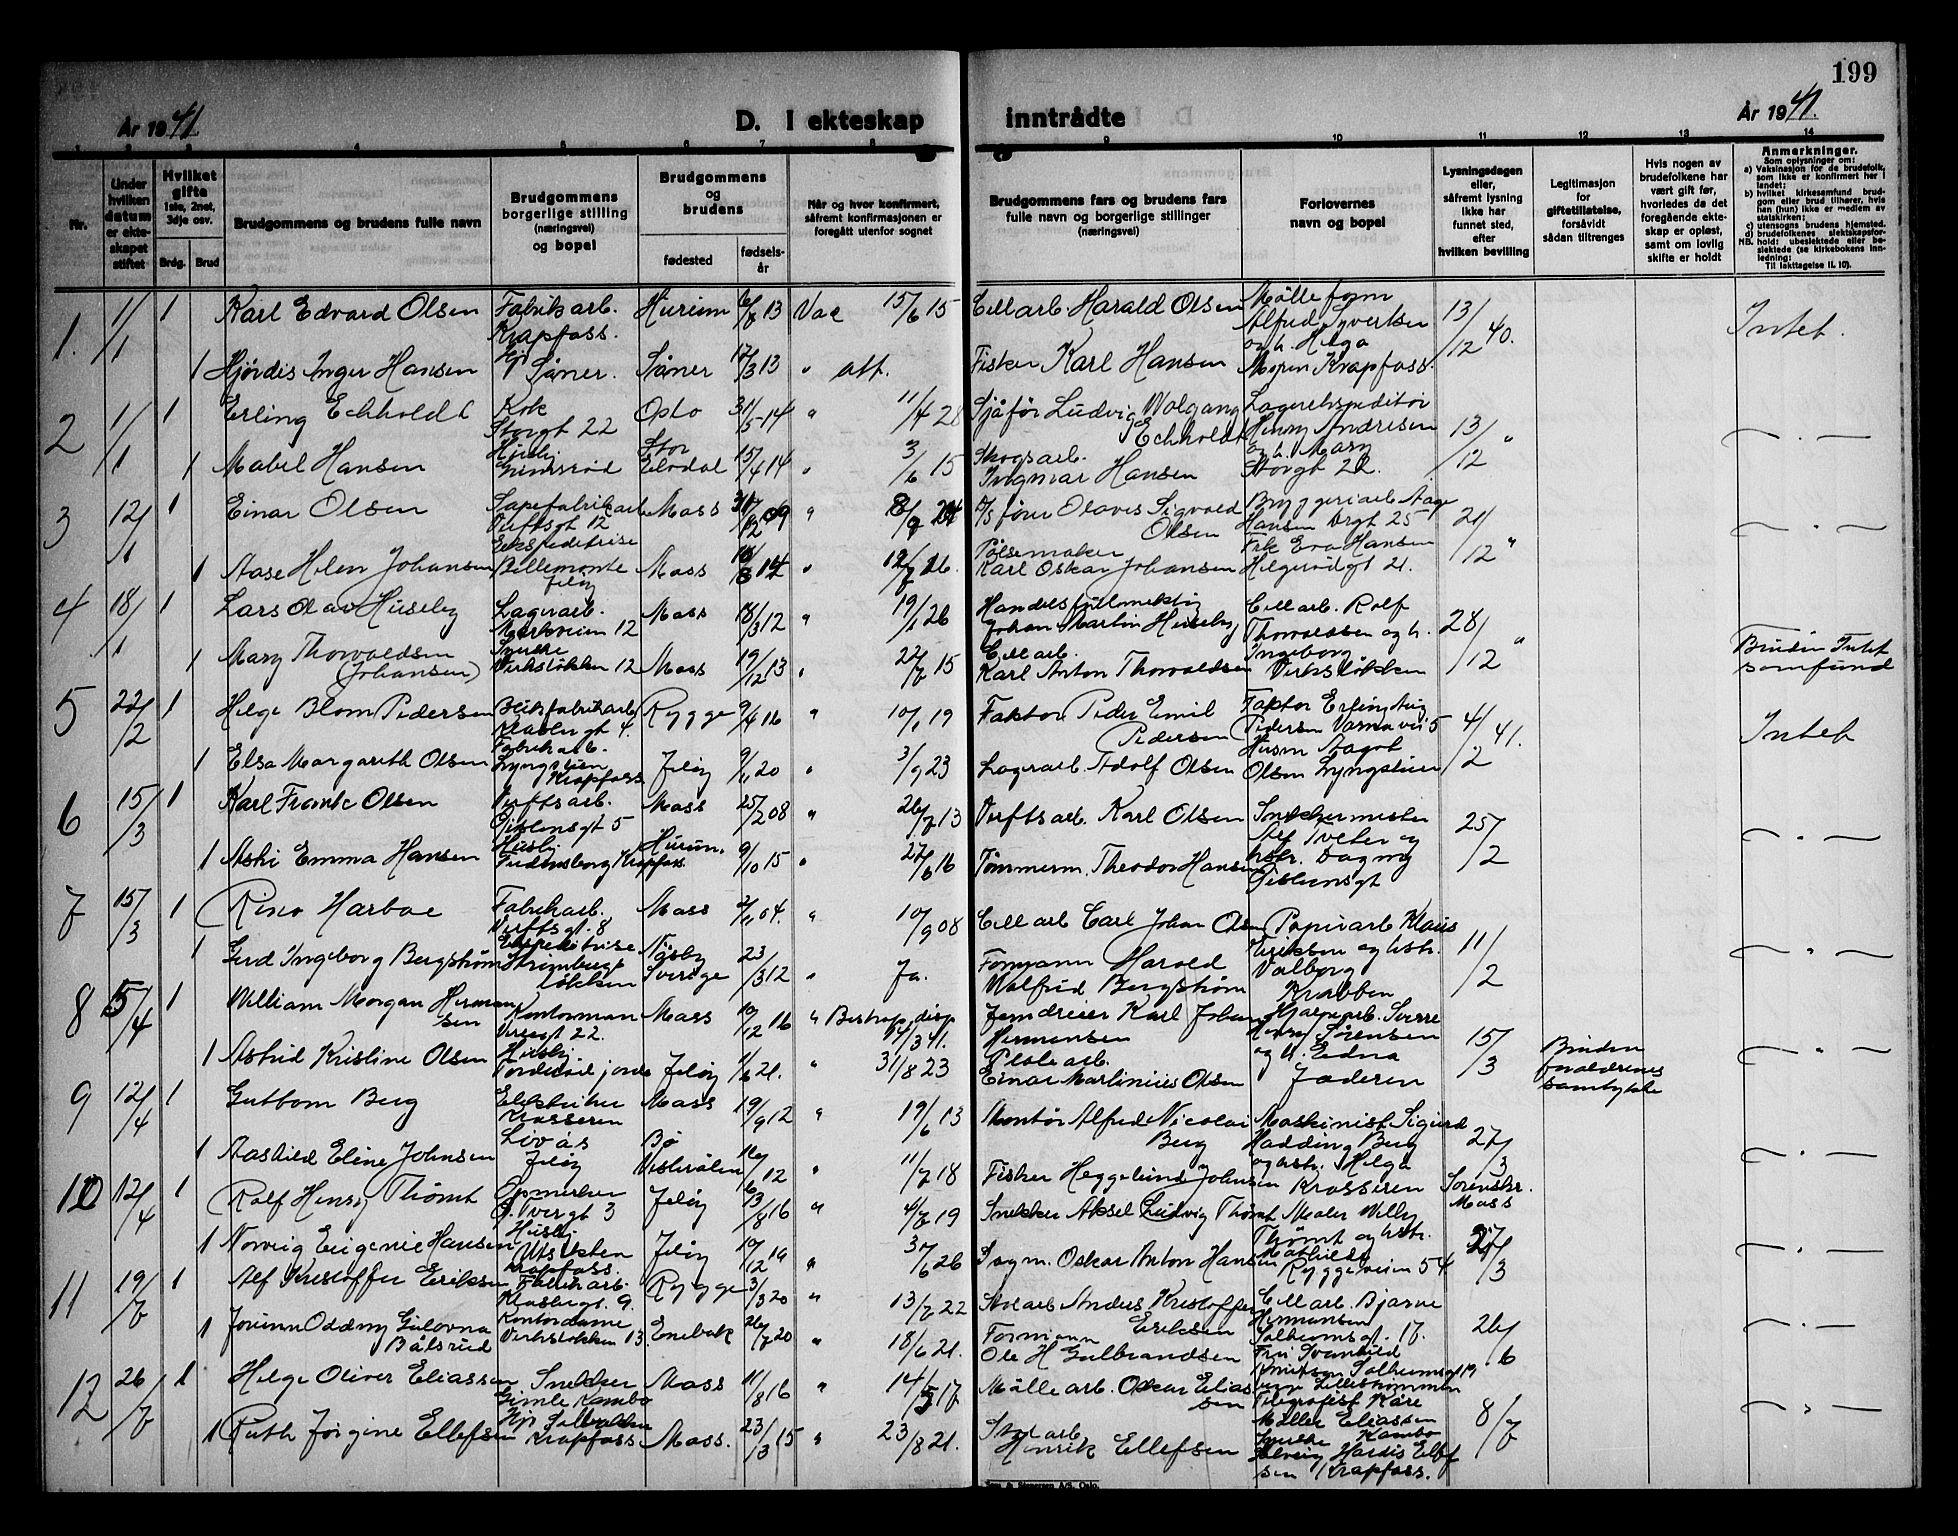 199
År 1941
D. I ekteskap inntrådte
År 1941.
1 2 3 4 5 6 7 8 9 10 11 12 13 14
Nr.
Under hvilken datum er ekteskapet stiftet
Hvilket gifte 1ste, 2net, 3dje osv.
Brdg. Brud
Brudgommens og brudens fulle navn
Brudgommens borgerlige stilling (næringsvei) og bopel
Brudgommens og brudens
fødested
fødsels-år
Når og hvor konfirmert, såfremt konfirmasjonen er foregått utenfor sognet
Brudgommens fars og brudens fars fulle navn og borgerlige stillinger (næringsvei)
Forlovernes navn og bopel
Lysningsdagen eller, såfremt lysning ikke har funnet sted, efter hvilken bevilling
Legitimasjon for giftetillatelse, forsåvidt sådan tiltrenges
Hvis nogen av brudefolkene har vært gift før, hvorledes da det foregående ekteskap er opløst, samt om lovlig skifte er holdt
Anmerkninger.
Som oplysninger om:
a) Vaksinasjon for de brudefolk, som ikke er konfirmert her i landet;
b) hvilket kirkesamfund brudgom eller brud tilhører, hvis han (hun) ikke er medlem av statskirken;
c) utensogns brudens hjemsted.
d) brudefolkenes slektskapsforhold: ubeslektede eller beslektede (se kirkebokens innledning:
NB. Til Iakttagelse II. 10).
1. 1/1 1 Karl Edvard Olsen Fabrikarb. Krapfoss. Hurum 6/8 13 Vac 15/6 15 Cell arb. Harald Olsen Mølleform Alfred Syvertsen og h. Helga 13/12 40. Intet.
1 Hjørdis Inger Hansen Hj. Såner. Såner 17/3 13 " att. Fisker Karl Hansen Krapfoss.
2 1/1 1 Erling Echholdt Kok Storgt 22 Oslo 31/5 14 " 11/4 28 Sjåfør Ludvig Wolgang Echholdt Lagerekspeditør Henry Andresen og h. Mary Storgt 22. 13/12 " — " —
1 Mabel Hansen Husbj. Stor Elvdal 15/4 14 " 3/6 15 Skogsarb. Ingmar Hansen
3 12/1 1 Einar Olsen Sæpefabrikarb Verftsgt 12 Moss 09 " Olaves Sigvald Olsen Bryggeriarb Aage Hansen Frk Eva Hansen Helgerødgt 21. 21/12 " — " —
1 Aase Helen Johansen Ekspeditrise Jeløy Moss " Pølsemaker Karl Oskar Johansen
4 18/1 1 Lars Olav Huseby Lagerarb. Markveien 12 Moss 18/3 12 " 19/1 26 Handelsfullmektig Johan Martin Huseby Cell arb. Rolf Thorvaldsen og h. Ingeborg Verksløkken 28/12 " Bruden Intet samfund
1 Mary Thorvaldsen (Johansen) Verksløkken 12 Moss 19/12 13 " 22/7 15 Cell arb. Karl Anton Thorvaldsen
5 22/2 1 Helge Blom Pedersen Blikfabrikarb Klosbergt 4. Rygge 9/4 16 " 10/1 19 Faktor Peder Emil Pedersen Faktor Erling Pedersen Varnavei 5 Olsen Lyngstien 4/2 41. Intet
1 Elsa Margareth Olsen Fabrikarb. Lyngstien Krapfoss Jeløy 9/11 20 " 3/9 23 Lagerarb. Adolf Olsen
6 15/3 1 Karl Frank Olsen Verftsarb. Gislensgt 5 Moss 25/2 08 " 26/7 13 Verftsarb. Karl Olsen Snekkermester Alf Tveter og hstr. Dagny 25/2 — " —
1 Aslu Emma Hansen Husbj. Fredensborg Krapfoss. Hurum. 9/10 15 " 27/6 16 Tømmerm. Theodor Hansen
7 15/3 1 Rino Harboe Fabrikarb. Verftsgt. 8 Moss 2/11 04. " 10/9 08 Cell arb Carl Johan Olsen Papirarb Klaus Eriksen og hstr. Valborg Krabben 11/2 — " —
1 Gerd Ingeborg Bergstrøm Ekspeditrise løkken Nøsby Sverige 23/3 12 " Ja. Formann Harald Walfrid Bergstrøm
8 5/4 1 William Morgan Hermansen Kontorman Vergt 22. Moss 19/12 16 " Biskop. disp 14/3 41. Jerndreier Karl Johan Hermansen Hjælpearb. Sverre Henry Sørensen og h. Edna Jæderen 15/3 Bruden foreldrenes samtykke — " —
1 Astrid Kristine Olsen Husbj. Torderød jorde Jeløy 1/6 21. " 31/8 23 Platearb. Einar Martinius Olsen
9 12/4 1 Guttorm Berg Elektriker Krosseren Moss 19/9 12 " 19/6 13 Montør Alfred Nicolai Berg Maskinist Sigurd Hadding Berg og hstr. Helga Krosseren 27/3 Sorenskr. Moss — " —
1 Aashild Eline Johnsen Livås Jeløy Bø Vesterålen 12 " 11/7 18 Fisker Heggelund Johnsen
10 12/4 1 Rolf Henry Thømt Opmerker Jeløy 13/8 16 " 4/7 19 Snekker Aksel Ludvig Thømt Maler Willy Thømt og hstr. Mathilde Ryggeveien 54 27/3 — " —
1 Norveig Eugenie Hansen Husbj. Utsikten Krapfoss. Jeløy 10/12 19 " 3/6 26 Oskar Anton Hansen
11 19/7 1 Alf Kristoffer Eriksen Fabrikarb. Klosbergt. 9. Rygge 3/3 20 " 13/7 22 Anders Kristoffer Eriksen Cell arb. Bjarne Hermansen Solheimsgt. 17. Fru Svanhild 26/6 — " —
1 Jorunn Oddny Gulovna Bålsrud Kontordame Verksløkken 13. Enebak 26/7 20 " 18/6 21. Formann Ole H Gulbrandsen
12 26/7 1 Helge Oliver Eliassen Snekker Gimle Kambo Moss 11/8 16 " 14/5 17 Mølle arb. Oskar Eliassen Telegrafist Kåre Møller Eliassen Kambo Solveig Hardis Ellefsen Krapfoss. 8/7 — " —
1 Ruth Jørgine Ellefsen Krapfoss Moss. 23/3 15 " 23/8 21. Henrik Ellefsen